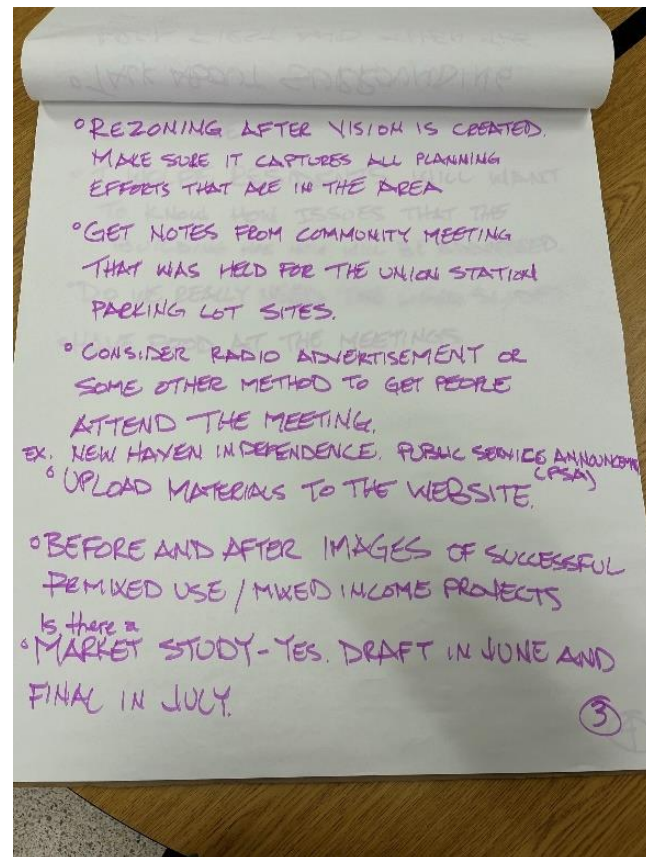 ° REZONING AFTER VISION IS CREATED.
MAKE SURE IT CAPTURES ALL PLANNING
EFFORTS THAT ARE IN THE AREA
° GET NOTES FROM COMMUNITY MEETING
THAT WAS HELD FOR THE UNION STATION
PARKING LOT SITES.
° CONSIDER RADIO ADVERTISEMENT OR
SOME OTHER METHOD TO GET PEOPLE
ATTEND THE MEETING.
EX. NEW HAVEN INDEPENDENCE. PUBLIC SERVICE ANNOUNCEMENT
(PSA)
° UPLOAD MATERIALS TO THE WEBSITE.
° BEFORE AND AFTER IMAGES OF SUCCESSFUL
MIXED USE / MIXED INCOME PROJECTS
Is there a
° MARKET STUDY - YES. DRAFT IN JUNE AND
FINAL IN JULY.
3